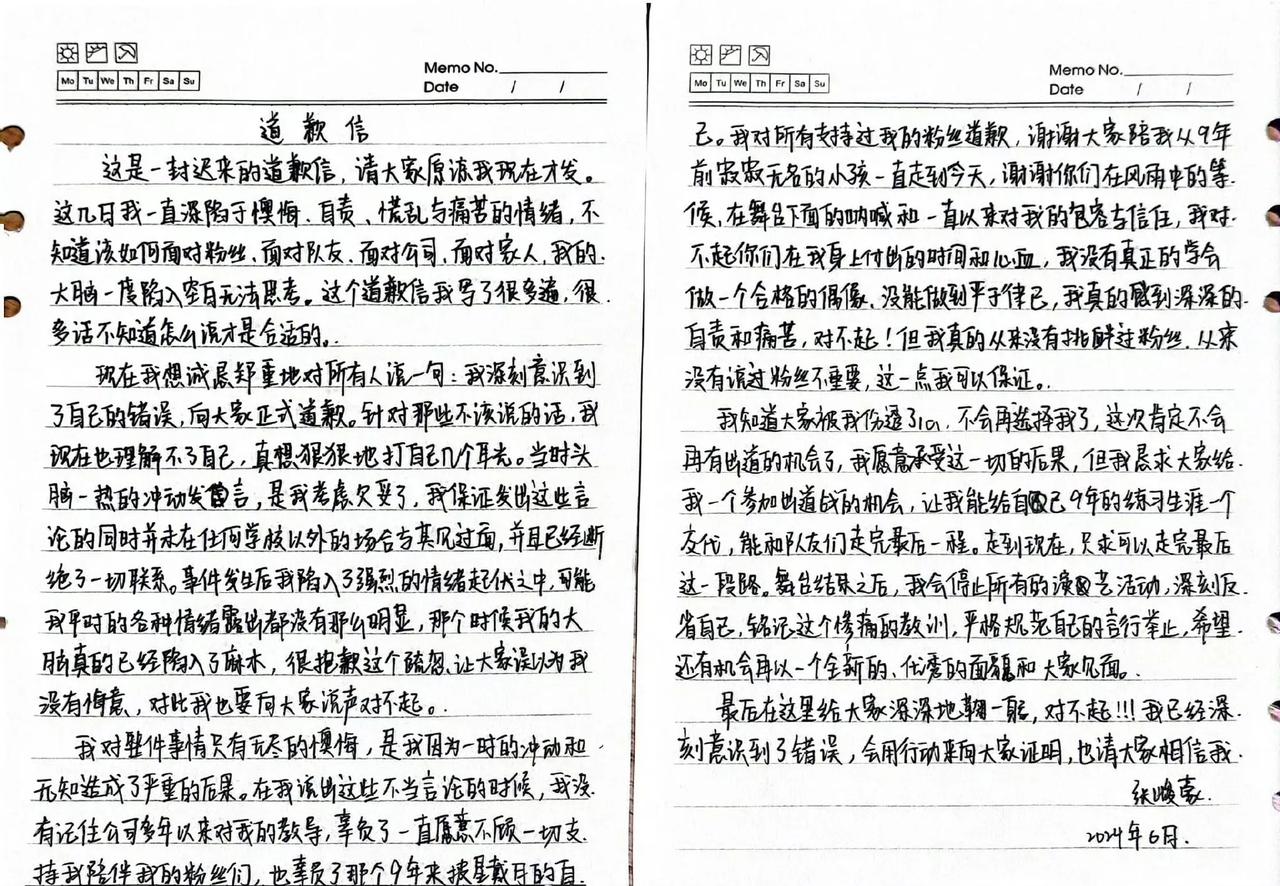 Mo Tu We Th Fr Sa Su
Memo No.
Date / /
道歉信
这是一封迟来的道歉信，请大家原谅我现在才发。
这几日我一直深陷于懊悔、自责、慌乱与痛苦的情绪，不
知道该如何面对粉丝、面对队友、面对公司、面对家人，我的
大脑一度陷入空白无法思考。这个道歉信我写了很多遍，很
多话不知道怎么说才是合适的。
现在我想诚恳郑重地对所有人说一句：我深刻意识到
了自己的错误，向大家正式道歉。针对那些不该说的话，我
现在也理解不了自己，真想狠狠地打自己几个耳光。当时头
脑一热的冲动发言，是我考虑欠妥了，我保证发出这些言
论的同时并未在任何学校以外的场合与其见过面，并且已经断
绝了一切联系。事件发生后我陷入了强烈的情绪起伏之中，可能
我平时的各种情绪露出都没有那么明显，那个时候我的大
脑真的已经陷入了麻木，很抱歉这个疏忽、让大家误以为我
没有悔意，对此我也要向大家说声对不起。
我对整件事情只有无尽的懊悔，是我因为一时的冲动和
无知造成了严重的后果。在我说出这些不当言论的时候，我没
有记住公司多年以来对我的教导，辜负了一直愿意不顾一切支
持我陪伴我的粉丝们，也辜负了那个9年来披星戴月的自
Mo Tu We Th Fr Sa Su
Memo No.
Date / /
己。我对所有支持过我的粉丝道歉，谢谢大家陪我从9年
前寂寂无名的小孩一直走到今天，谢谢你们在风雨中的等
候、在舞台下面的呐喊和一直以来对我的包容与信任，我对
不起你们在我身上付出的时间和心血，我没有真正的学会
做一个合格的偶像、没能做到严于律己，我真的感到深深的
自责和痛苦，对不起！但我真的从来没有挑衅过粉丝、从来
没有说过粉丝不重要，这一点我可以保证。
我知道大家被我伤透了心，不会再选择我了，这次肯定不会
再有出道的机会了，我愿意承受这一切的后果，但我恳求大家给
我一个参加出道战的机会，让我能给自己9年的练习生涯一个
交代，能和队友们走完最后一程。走到现在，只求可以走完最后
这一段路。舞台结束之后，我会停止所有的演艺活动，深刻反
省自己，铭记这个惨痛的教训，严格规范自己的言行举止，希望
还有机会再以一个全新的、优秀的面貌和大家见面。
最后在这里给大家深深地鞠一躬，对不起!!!我已经深
刻意识到了错误，会用行动来向大家证明，也请大家相信我
张峻豪
2024年6月.